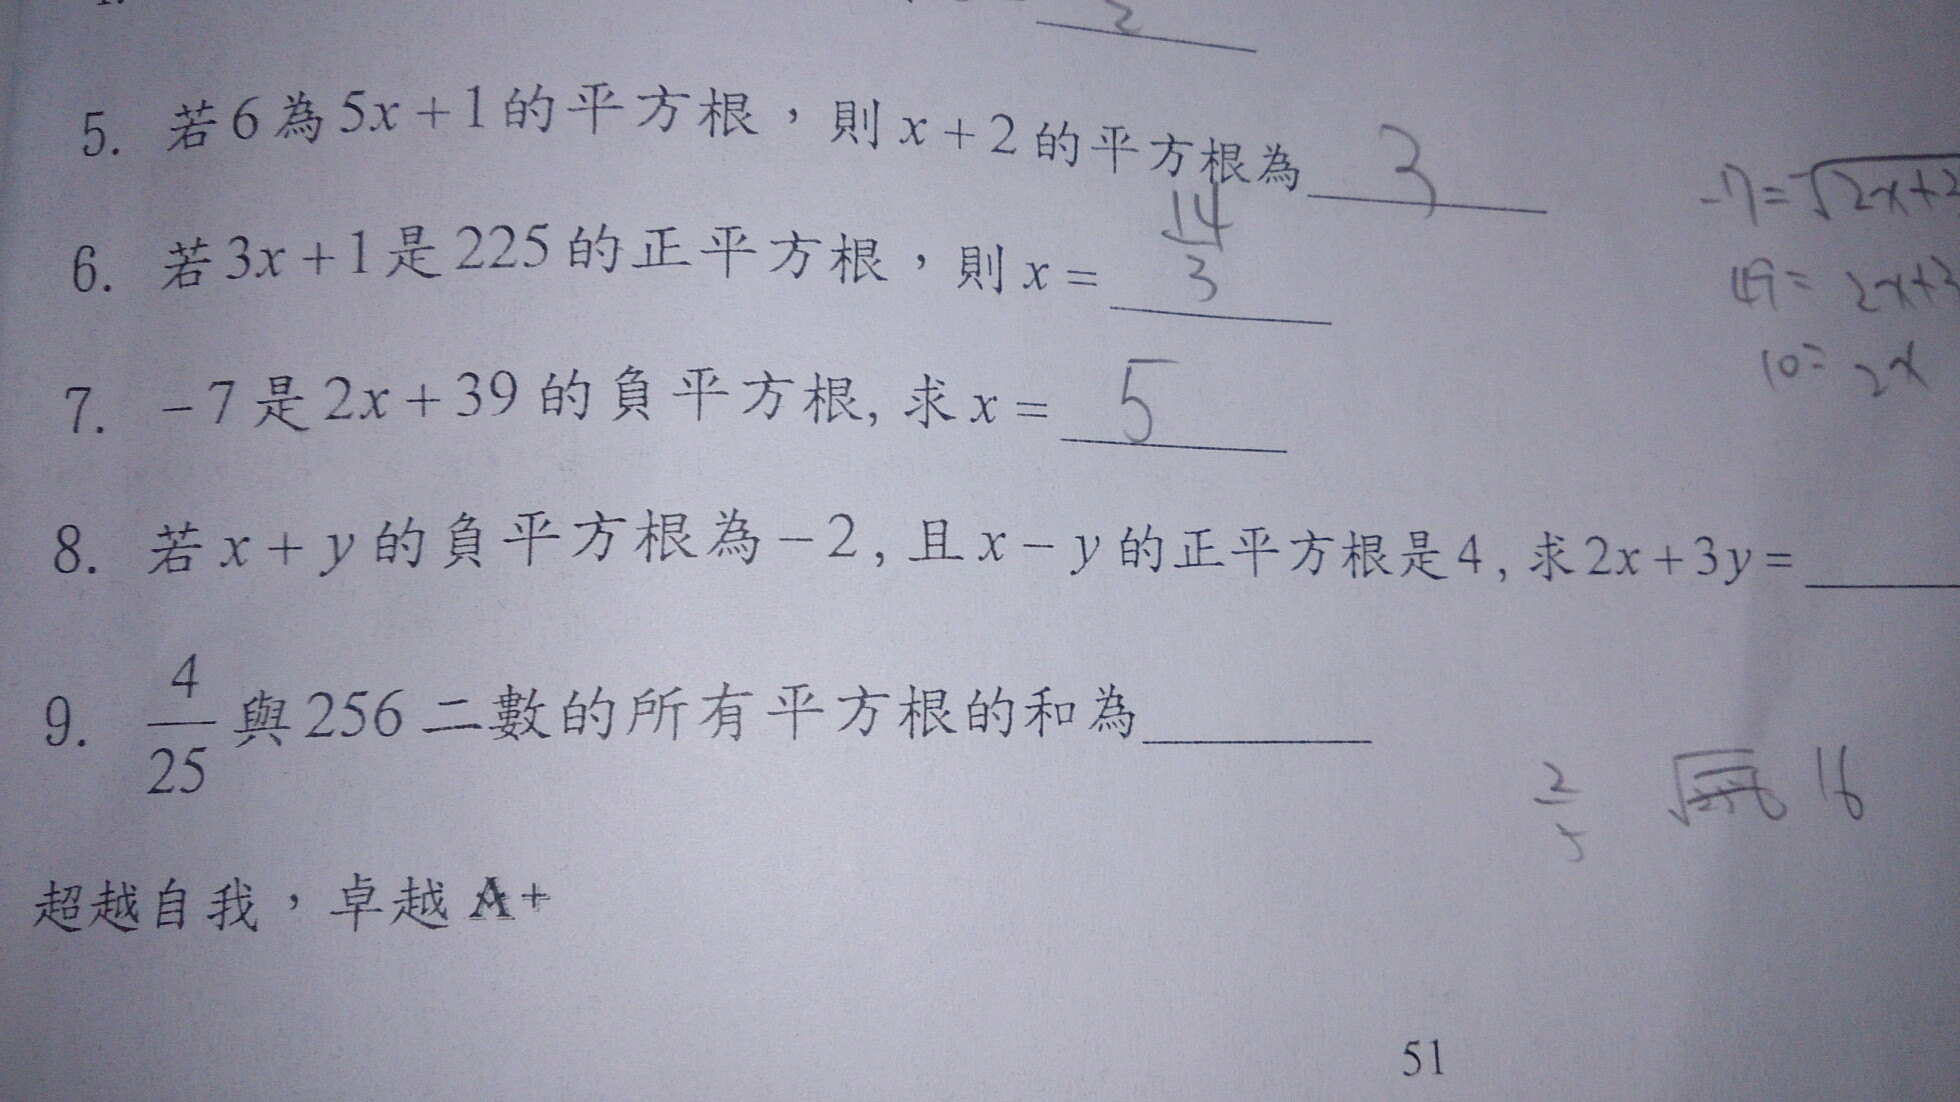 2
5. 若6為5x+1的平方根，則x+2的平方根為 3
6. 若3x+1是225的正平方根，則x= 14/3
7. -7是2x+39的負平方根, 求x= 5
-7=√2x+3
49= 2x+3
10= 2x
8. 若x+y的負平方根為-2, 且x-y的正平方根是4, 求2x+3y=
9. 4/25 與256二數的所有平方根的和為
2/5 16
超越自我，卓越A+
51